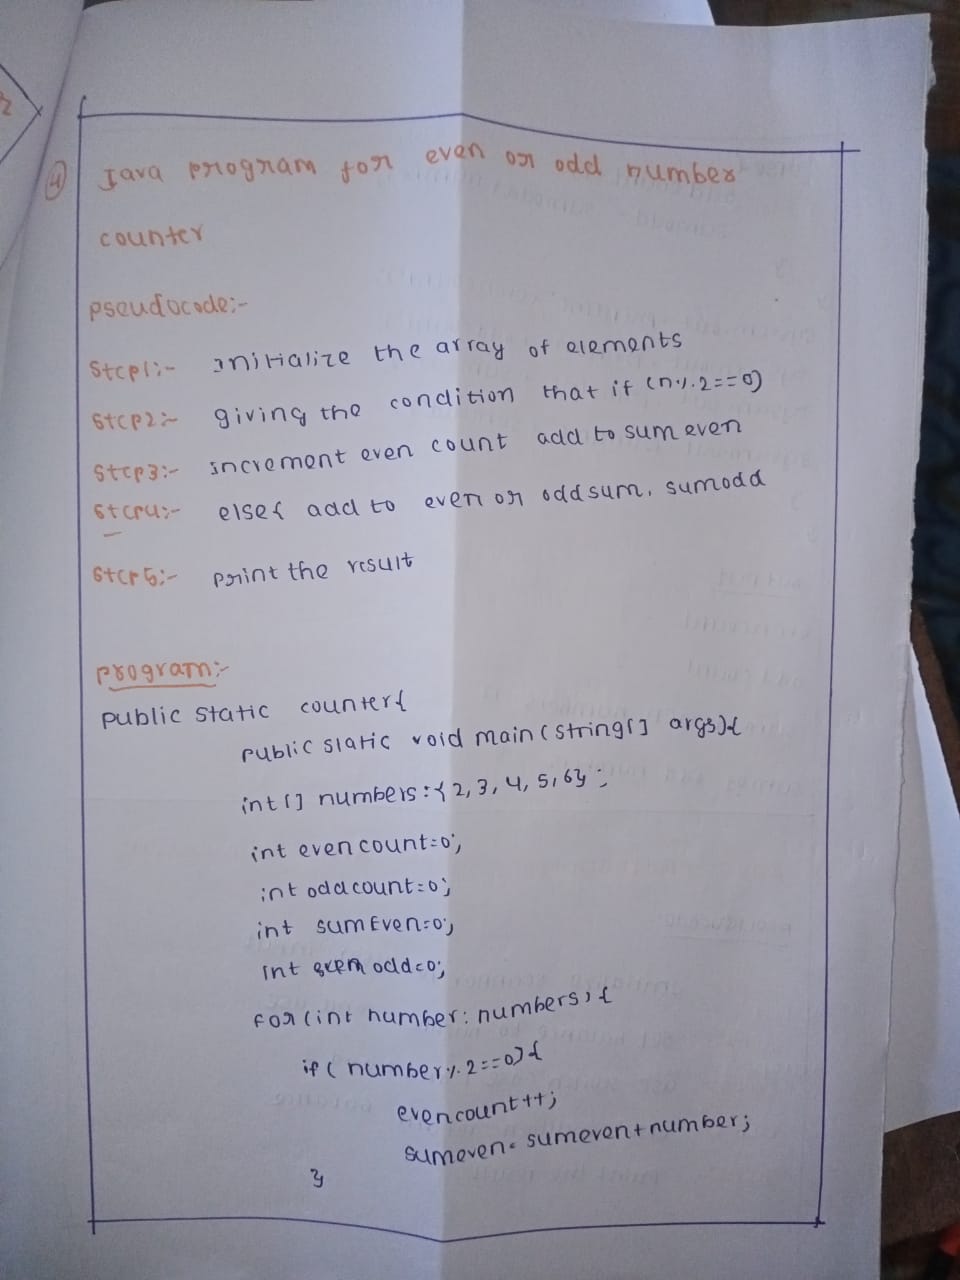 4 Java program for even or odd number
counter
pseudocode:-
Step1:- initialize the array of elements
Step2:- giving the condition that if (n%2==0)
Step3:- increment even count add to sum even
Step4:- else{ add to even or odd sum, sumodd
Step5:- print the result
program:-
public static counter{
public static void main(string[] args){
int[] numbers:{2,3,4,5,6};
int evencount=0;
int oddcount=0;
int sumEven=0;
int odd=0;
for(int number: numbers){
if(number%2==0){
evencount++;
sumeven=sumeven+number;
}